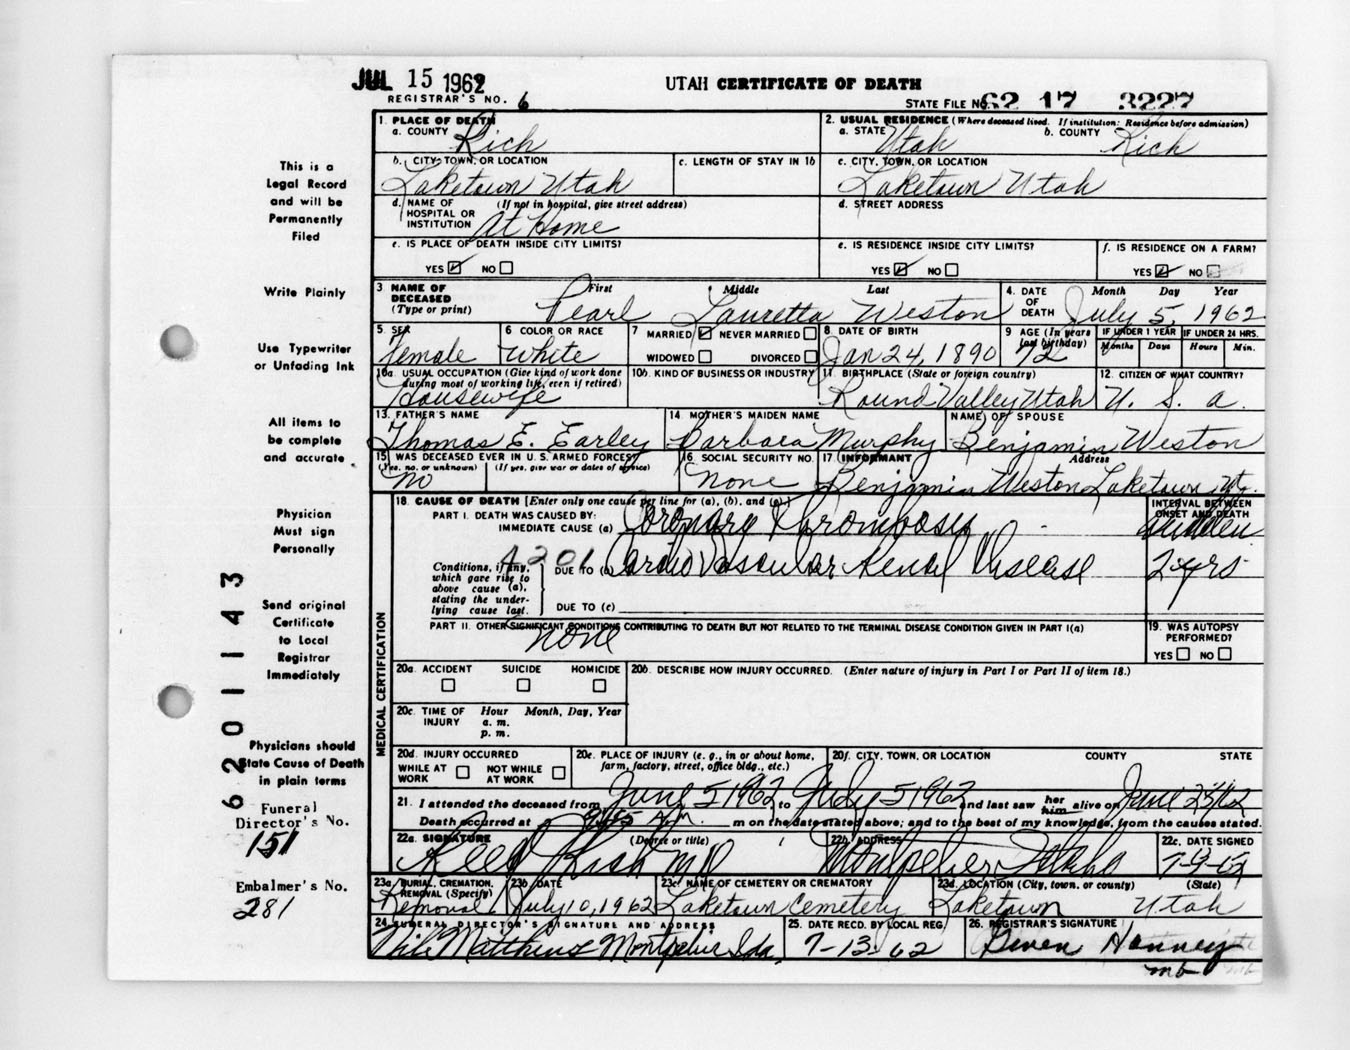 JUL 15 1962
UTAH CERTIFICATE OF DEATH
REGISTRAR'S NO. 6
STATE FILE NO. 62 17 3227
1. PLACE OF DEATH
a. COUNTY Rich
2. USUAL RESIDENCE (Where deceased lived. If institution: Residence before admission)
a. STATE Utah b. COUNTY Rich
b. CITY, TOWN, OR LOCATION
Laketown Utah
c. LENGTH OF STAY IN 1b
c. CITY, TOWN, OR LOCATION
Laketown Utah
d. NAME OF HOSPITAL OR INSTITUTION (If not in hospital, give street address)
At Home
d. STREET ADDRESS
e. IS PLACE OF DEATH INSIDE CITY LIMITS?
YES NO
e. IS RESIDENCE INSIDE CITY LIMITS?
YES NO
f. IS RESIDENCE ON A FARM?
YES NO
3. NAME OF DECEASED (Type or print)
First Middle Last
Pearl Lauretta Weston
4. DATE OF DEATH Month Day Year
July 5, 1962
5. SEX
Female
6 COLOR OR RACE
White
7 MARRIED NEVER MARRIED
WIDOWED DIVORCED
8 DATE OF BIRTH
Jan 24, 1890
9 AGE (In years last birthday)
72
IF UNDER 1 YEAR
Months Days
IF UNDER 24 HRS.
Hours Min.
10a. USUAL OCCUPATION (Give kind of work done during most of working life, even if retired)
Housewife
10b. KIND OF BUSINESS OR INDUSTRY
11. BIRTHPLACE (State or foreign country)
Round Valley Utah
12. CITIZEN OF WHAT COUNTRY?
U. S. a.
13. FATHER'S NAME
Thomas E. Earley
14 MOTHER'S MAIDEN NAME
Barbara Murphy
NAME OF SPOUSE
Benjamin Weston
15 WAS DECEASED EVER IN U. S. ARMED FORCES?
(Yes, no, or unknown) (If yes, give war or dates of service)
no
16. SOCIAL SECURITY NO.
none
17 INFORMANT Address
Benjamin Weston Laketown Ut.
18. CAUSE OF DEATH [Enter only one cause per line for (a), (b), and (c)]
INTERVAL BETWEEN ONSET AND DEATH
PART I. DEATH WAS CAUSED BY:
IMMEDIATE CAUSE (a) Coronary Thrombosis Sudden
4201
Conditions, if any, which gave rise to above cause (a), stating the underlying cause last.
DUE TO (b) Cardio Vascular Renal Disease 2 yrs
DUE TO (c)
PART II. OTHER SIGNIFICANT CONDITIONS CONTRIBUTING TO DEATH BUT NOT RELATED TO THE TERMINAL DISEASE CONDITION GIVEN IN PART I(a)
none
19. WAS AUTOPSY PERFORMED?
YES NO
20a. ACCIDENT SUICIDE HOMICIDE
20b. DESCRIBE HOW INJURY OCCURRED. (Enter nature of injury in Part I or Part II of item 18.)
20c. TIME OF INJURY Hour Month, Day, Year
a. m.
p. m.
20d. INJURY OCCURRED
WHILE AT WORK NOT WHILE AT WORK
20e. PLACE OF INJURY (e. g., in or about home, farm, factory, street, office bldg., etc.)
20f. CITY, TOWN, OR LOCATION COUNTY STATE
21. I attended the deceased from June 5 1962 to July 5 1962 and last saw her him alive on June 25/62
Death occurred at 9:45 A.m. m on the date stated above; and to the best of my knowledge, from the causes stated.
22a. SIGNATURE (Degree or title)
Reed Rich MD
22b. ADDRESS
Montpelier Idaho
22c. DATE SIGNED
7-9-62
23a. BURIAL, CREMATION, REMOVAL (Specify)
Removal
23b DATE
July 10, 1962
23c. NAME OF CEMETERY OR CREMATORY
Laketown Cemetery
23d. LOCATION (City, town, or county) (State)
Laketown Utah
24. FUNERAL DIRECTOR'S SIGNATURE AND ADDRESS
Matthews Montpelier Ida.
25. DATE RECD. BY LOCAL REG.
7-13-62
26. REGISTRAR'S SIGNATURE
Gwen Hanney
mb
MEDICAL CERTIFICATION
This is a
Legal Record
and will be
Permanently
Filed
Write Plainly
Use Typewriter
or Unfading Ink
All items to
be complete
and accurate.
Physician
Must sign
Personally
Send original
Certificate
to Local
Registrar
Immediately
Physicians should
State Cause of Death
in plain terms
Funeral
Director's No.
151
Embalmer's No.
281
6201143